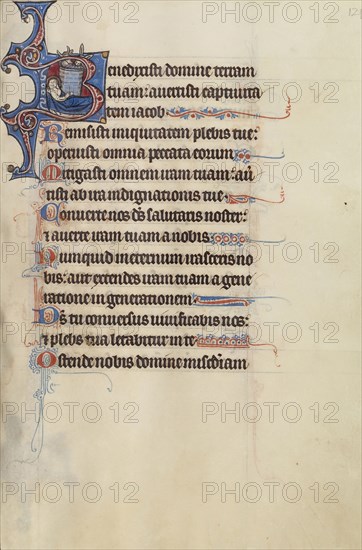 Benedixisti domine terram
tuam: avertisti captivita
tem iacob
Remisisti iniquitatem plebis tue:
operuisti omnia peccata eorum
Mitigasti omnem iram tuam: aver
tisti ab ira indignationis tue
Converte nos ds salutaris noster:
et averte iram tuam a nobis
Nunquid in eternum irasceris no
bis: aut extendes iram tuam a gene
ratione in generationem
Ds tu conversus vivificabis nos:
et plebs tua letabitur in te
Ostende nobis domine misericordiam
PHOTO12